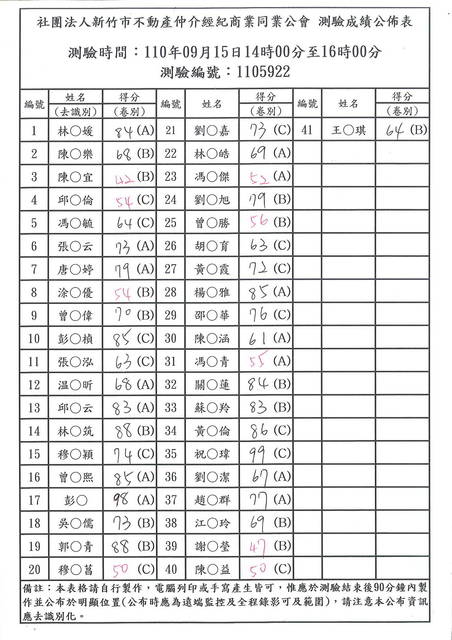 社團法人新竹市不動產仲介經紀商業同業公會 測驗成績公佈表
測驗時間：110年09月15日14時00分至16時00分
測驗編號：1105922
編號 姓名(去識別) 得分(卷別) 編號 姓名(去識別) 得分(卷別) 編號 姓名(去識別) 得分(卷別)
1 林○媛 84 (A) 21 劉○嘉 73 (C) 41 王○琪 64 (B)
2 陳○樂 68 (B) 22 林○皓 69 (A)
3 陳○宜 42 (B) 23 馮○傑 52 (A)
4 邱○倫 54 (C) 24 劉○旭 79 (B)
5 馮○毓 64 (C) 25 曾○勝 56 (B)
6 張○云 73 (A) 26 胡○育 63 (C)
7 唐○婷 79 (A) 27 黃○霞 72 (C)
8 涂○優 54 (B) 28 楊○雅 85 (A)
9 曾○偉 70 (B) 29 邵○華 76 (C)
10 彭○楨 85 (C) 30 陳○涵 61 (A)
11 張○泓 63 (C) 31 馮○青 55 (A)
12 温○昕 68 (A) 32 關○蓮 84 (B)
13 邱○云 83 (A) 33 蘇○羚 83 (B)
14 林○筑 88 (B) 34 黃○倫 86 (C)
15 穆○穎 74 (C) 35 祝○瑋 99 (C)
16 曾○熙 85 (A) 36 劉○潔 67 (A)
17 彭○ 98 (A) 37 趙○群 77 (A)
18 吳○儒 73 (B) 38 江○玲 69 (B)
19 郭○青 88 (B) 39 謝○瑩 47 (B)
20 穆○菖 50 (C) 40 陳○益 50 (C)
備註：本表格請自行製作，電腦列印或手寫產生皆可，惟應於測驗結束後90分鐘內製
作並公布於明顯位置(公布時應為遠端監控及全程錄影可及範圍)，請注意本公布資訊
應去識別化。